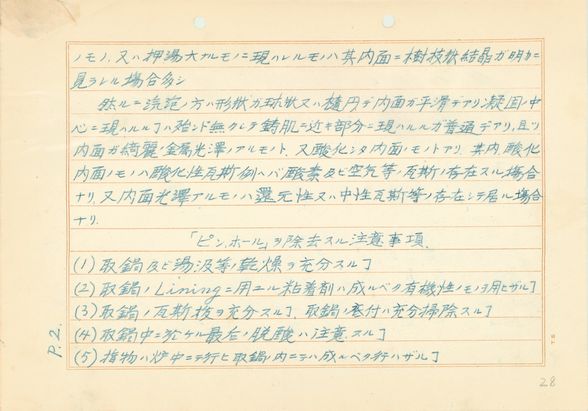 ノモノ、又ハ押湯大ナルモノニ現ハレルモノハ其内面ニ樹枝狀結晶ガ明カニ
見ラレル場合多シ
然ルニ ノ方ハ形狀ガ球狀又ハ楕円デ内面ガ平滑デアリ凝固ノ中
心ニ現ハルルヿハ殆ンド無クシテ鋳肌ニ近キ部分ニ現ハルルガ普通デアリ、且ツ
内面ガ綺麗ノ金属光澤ノアルモノト、又酸化シタ内面ノモノトアリ、其内、酸化
内面ノモノハ酸化性瓦斯例ヘバ酸素及ビ空気等ノ瓦斯ノ存在スル場合
ナリ、又内面光澤アルモノハ還元性又ハ中性瓦斯等ノ存在シテ居ル場合
ナリ.
「ピンホール」ヲ除去スル注意事項.
(1) 取鍋及ビ湯汲等ノ乾燥ヲ充分スルヿ
(2) 取鍋ノLiningニ用ユル粘着剤ハ成ルベク有機性ノモノヲ用ヒザルヿ
(3) 取鍋ノ瓦斯抜ヲ充分スルヿ、取鍋ノ底付ハ充分掃除スルヿ
(4) 取鍋中ニ於ケル最后ノ脱酸ハ注意スルヿ
(5) 指物ハ炉中ニテ行ヒ取鍋ノ内ニテハ成ルベク行ハザルヿ
P.2.
28